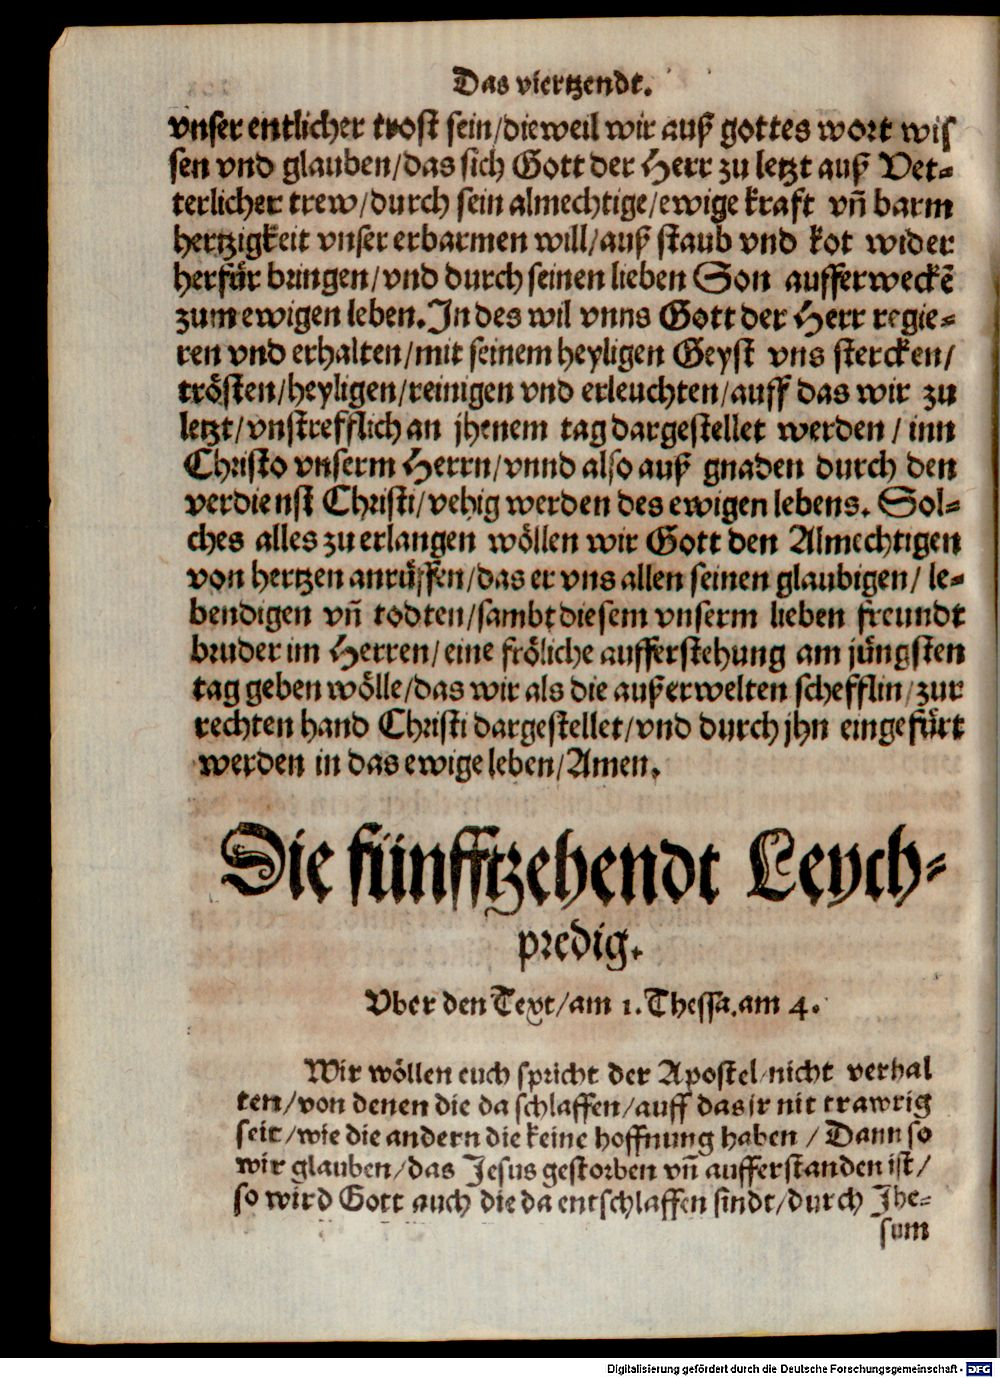 Das viertzendt.
vnser entlicher trost sein/dieweil wir auß gottes wort wis
sen vnd glauben/das sich Gott der Herr zu letzt auß Vet-
terlicher trew/durch sein almechtige/ewige kraft vñ barm
hertzigkeit vnser erbarmen will/auß staub vnd kot wider
herfür bringen/vnd durch seinen lieben Son aufferweckẽ
zum ewigen leben. Indes wil vnns Gott der Herr regie-
ren vnd erhalten/mit seinem heyligen Geyst vns stercken/
trösten/heyligen/reinigen vnd erleuchten/auff das wir zu
letzt/vnstrefflich an jhenem tag dargestellet werden/inn
Christo vnserm Herrn/vnnd also auß gnaden durch den
verdienst Christi/vehig werden des ewigen lebens. Sol-
ches alles zu erlangen wöllen wir Gott den Almechtigen
von hertzen anrüffen/das er vns allen seinen glaubigen/le-
bendigen vñ todten/sambt diesem vnserm lieben freundt
bruder im Herren/eine fröliche aufferstehung am jüngsten
tag geben wölle/das wir als die außerwelten schefflin/zur
rechten hand Christi dargestellet/vnd durch jhn eingefürt
werden in das ewige leben/Amen.
Die fünfftzehendt Leych-
predig.
Vber den Text/am 1. Thessa. am 4.
Wir wöllen euch spricht der Apostel/nicht verhal
ten/von denen die da schlaffen/auff das jr nit trawrig
seit/wie die andern die keine hoffnung haben/Dann so
wir glauben/das Jesus gestorben vñ aufferstanden ist/
so wird Gott auch die da entschlaffen sindt/durch Jhe-
sum
Digitalisierung gefördert durch die Deutsche Forschungsgemeinschaft - DFG